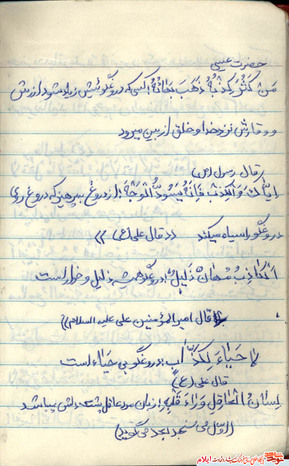 حضرت عیسی
مَن کَثُرَ کِذْبُهُ ذَهَبَ بَهائُهُ آکسی که دروغگوئیش زیاد شود ارزش
و وقارش نزد خدا و خلق از بین میرود
قال رسول (ص)
ایّاکَ وَالکِذبَ فَاِنَّهُ یُسَوِّدُ الْوَجْهَ از دروغ بپرهیز که دروغ روی
دروغگو را سیاه میکند «قال علی (ع)»
اَلْکاذِبُ مُهانٌ ذَلیلٌ دروغگو همیشه ذلیل و خوار است
قال امیرالمؤمنین علی علیه السلام»
لا حَیاءَ لِکَذّابٍ دروغگو بی حیاء است
قال علی (ع)
لِسانُ الْعاقِلِ وَراءَ قَلْبِهِ زبان مرد عاقل پشت دلش میباشد
اول می سنجد بعد می گوید)